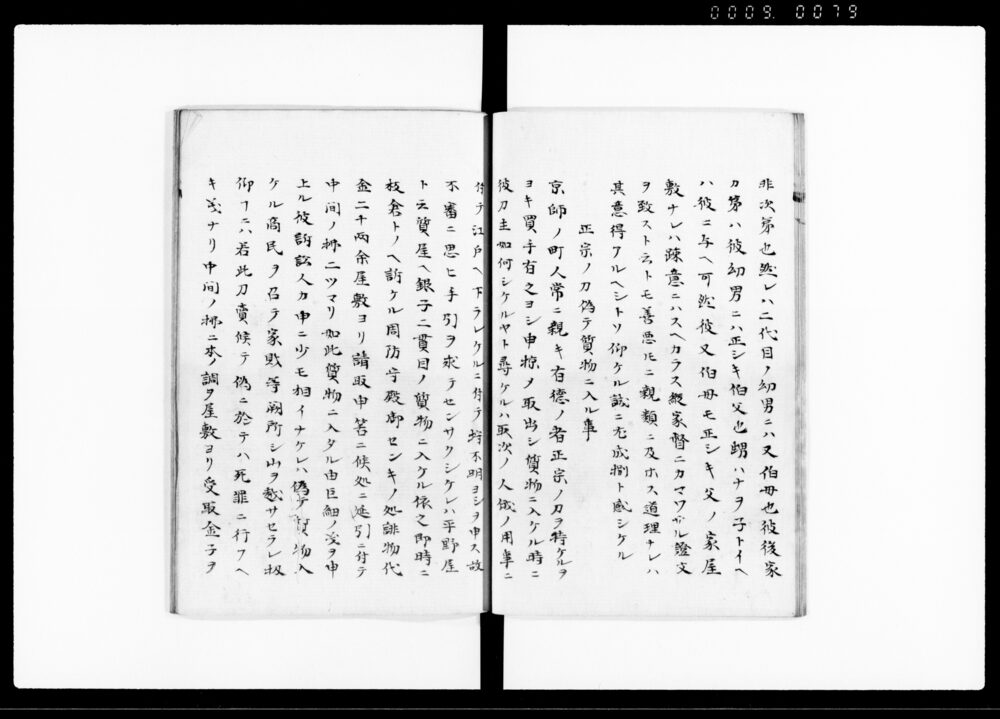 0009 0079
非次第也然レハ二代目ノ幼男ニハ又伯毋也彼後家
カ第ハ彼幼男ニハ正シキ伯父也甥ハナヲ子トイヘ
ハ彼ニ与ヘ可然彼又伯毋モ正シキ父ノ家屋
敷ナレハ疎意ニハスヘカラス縦家督ニカマワサル證文
ヲ致スト云トモ善悪ルニ親類ニ及ホス道理ナレハ
其意得アルヘシトソ仰ケル誠ニ尤成捌ト感シケル
正宗ノ刀偽テ質物ニ入ル事
京師ノ町人常ニ親キ有德ノ者正宗ノ刀ヲ持ケルヲ
ヨキ買手有之ヨシ申掠メ取出シ質物ニ入ケル時ニ
彼刀主如何シケルヤト尋ケルハ取次ノ人俄ノ用事ニ
付テ江戸ヘ下ラレケルニ付テ埒不明ヨシヲ申ス故
不審ニ思ヒ手引ヲ求テセンサクシケレハ平野屋
ト云質屋ヘ銀子二貫目ノ質物ニ入ケル依之即時ニ
板倉トノヘ訴ケル周防守殿御センキノ処誂物代
金二千両余屋敷ヨリ請取申筈ニ候処ニ延引ニ付テ
中間ノ拂ニツマリ如此質物ニ入タル由巨細ノ旨ヲ申
上ル彼訴訟人カ申ニ少モ相イナケレハ偽テ質物入
ケル商民ヲ召テ家財等闕所シ山ヲ越サセラレ扨
仰ケニハ若此刀賣候テ偽ニ於テハ死罪ニ行フヘ
キ義ナリ中間ノ拂ニ本ノ調ヲ屋敷ヨリ受取金子ヲ